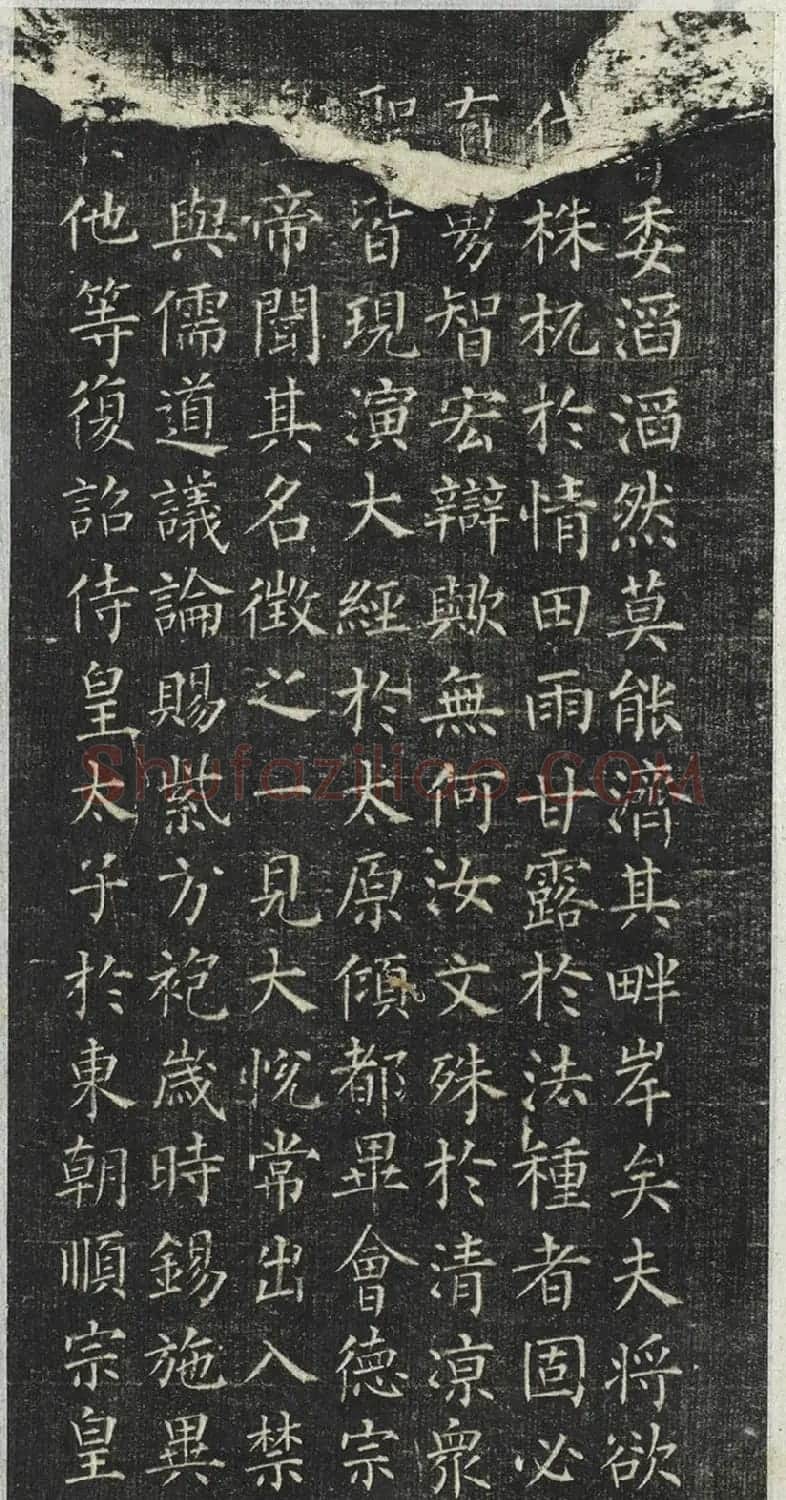 委滔滔然莫能濟其畔岸矣夫將欲
伐株杌於情田雨甘露於法種者固必
有勇智宏辯歟無何汝文殊於清涼衆
聖皆現演大經於太原傾都畢會德宗
帝聞其名徵之一見大悅常出入禁
與儒道議論賜紫方袍歲時錫施異
他等復詔侍皇太子於東朝順宗皇
Shufaziliao.COM